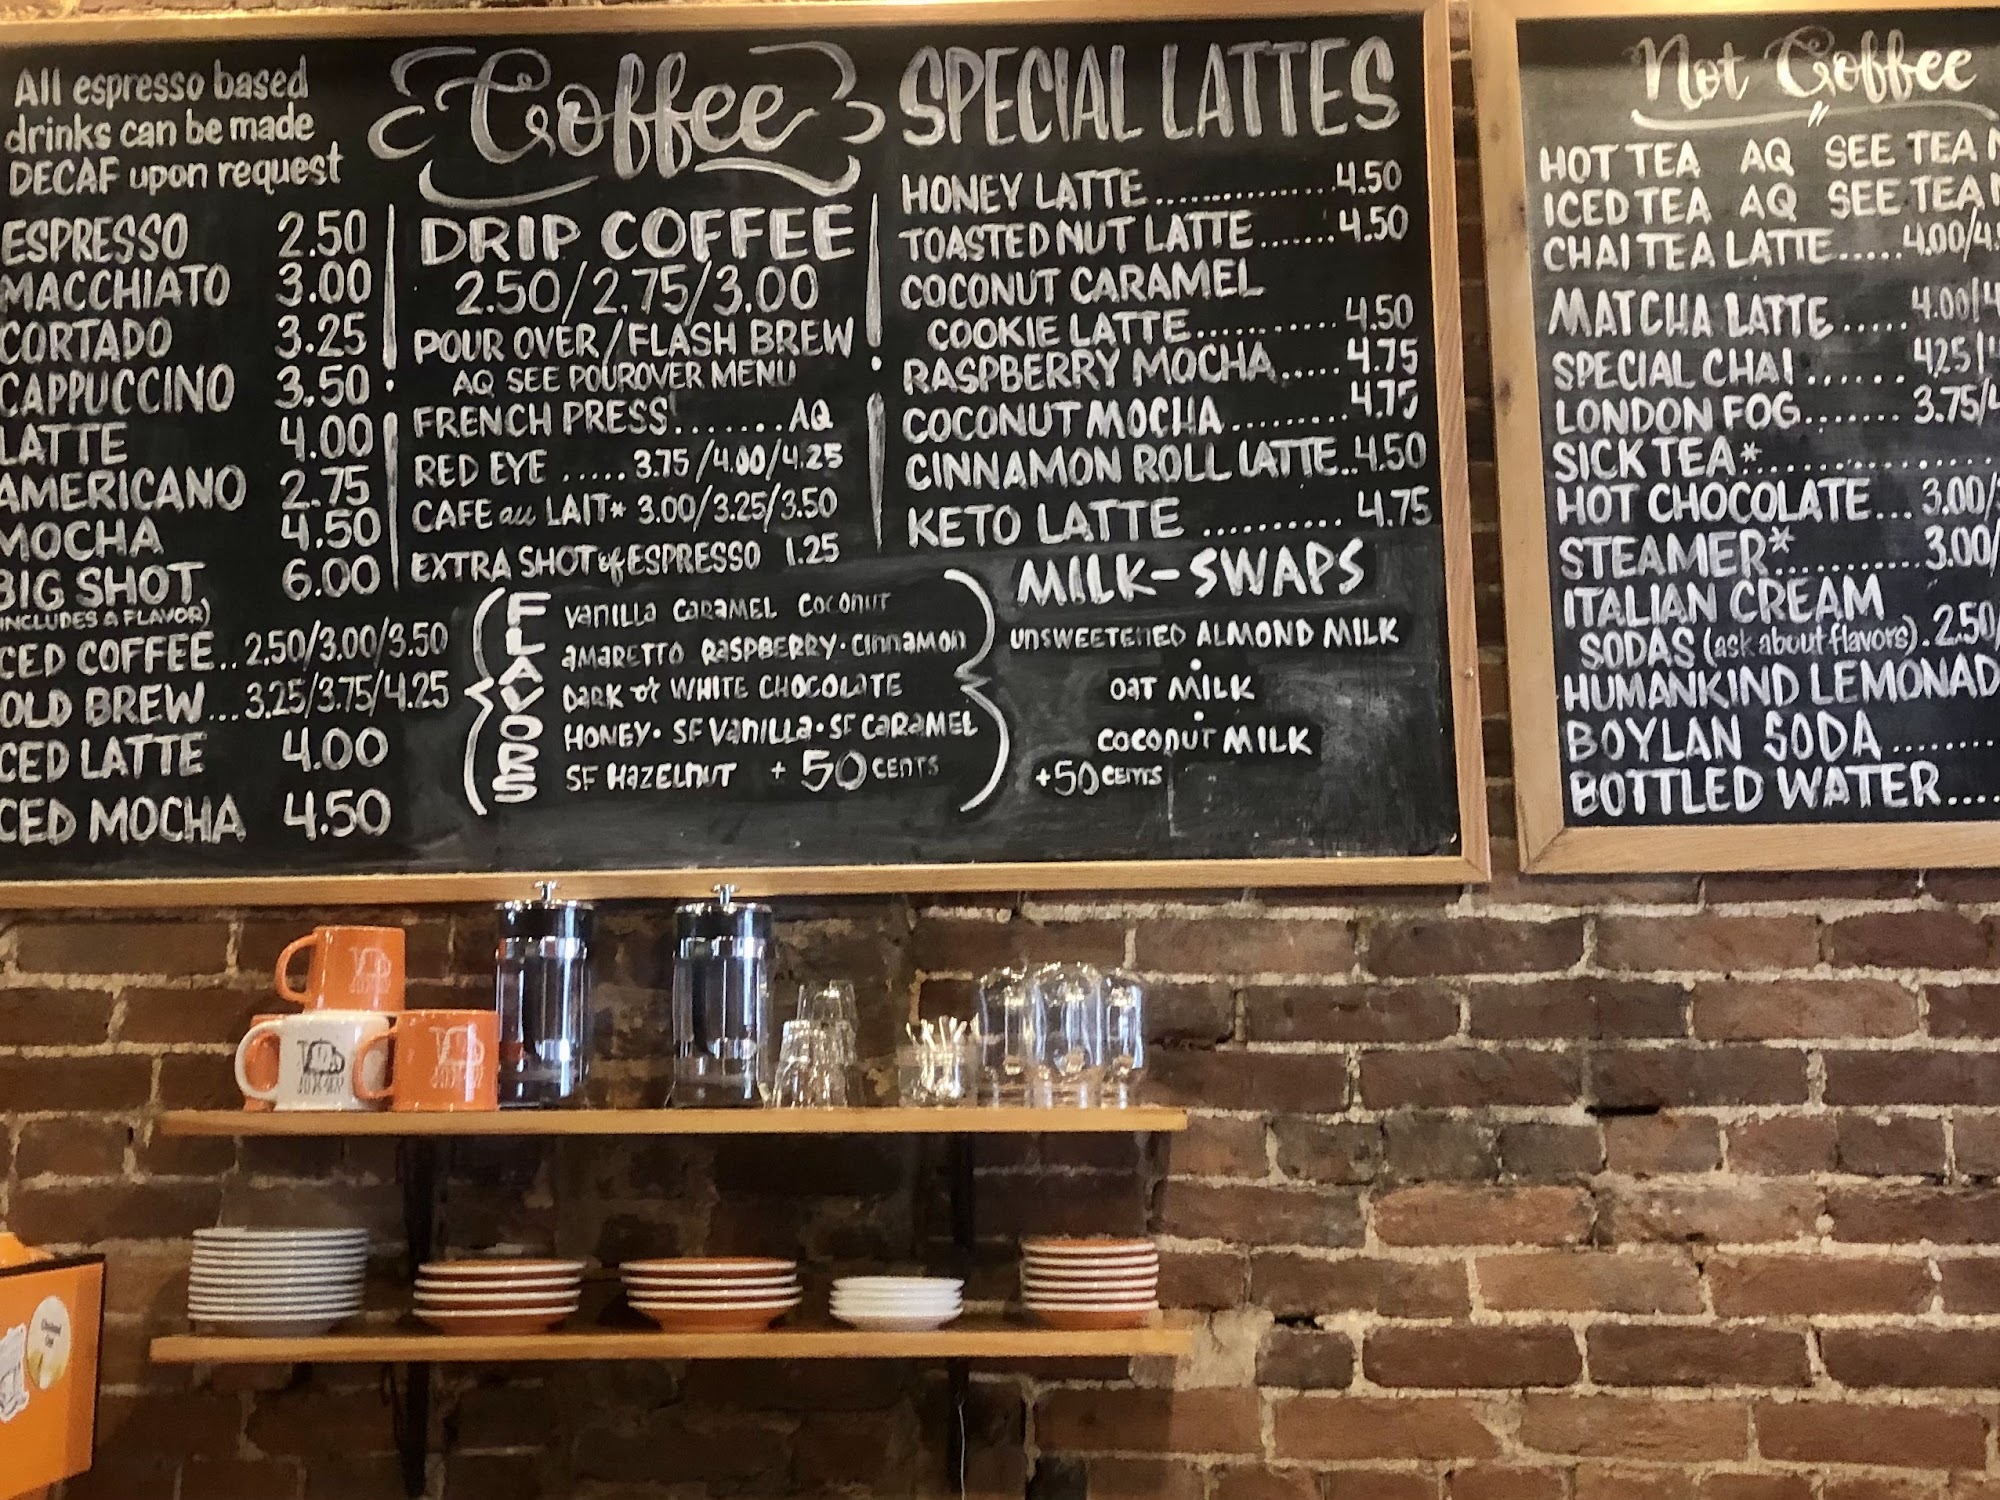 All espresso based
drinks can be made
DECAF upon request
ESPRESSO 2.50
MACCHIATO 3.00
CORTADO 3.25
CAPPUCCINO 3.50
LATTE 4.00
AMERICANO 2.75
MOCHA 4.50
BIG SHOT 6.00
INCLUDES A FLAVOR)
CED COFFEE.. 2.50/3.00/3.50
OLD BREW... 3.25/3.75/4.25
CED LATTE 4.00
CED MOCHA 4.50
Coffee
DRIP COFFEE
2.50/2.75/3.00
POUR OVER/FLASH BREW
AQ SEE POUROVER MENU
FRENCH PRESS....... AQ
RED EYE ..... 3.75/4.00/4.25
CAFE au LAIT* 3.00/3.25/3.50
EXTRA SHOT of ESPRESSO 1.25
FLAVORS
VANILLA CARAMEL COCONUT
AMARETTO RASPBERRY · CINNAMON
DARK or WHITE CHOCOLATE
HONEY · SF VANILLA · SF CARAMEL
SF HAZELNUT + 50 CENTS
SPECIAL LATTES
HONEY LATTE .............. 4.50
TOASTED NUT LATTE ....... 4.50
COCONUT CARAMEL
COOKIE LATTE ........... 4.50
RASPBERRY MOCHA..... 4.75
COCONUT MOCHA ........ 4.75
CINNAMON ROLL LATTE.. 4.50
KETO LATTE .......... 4.75
MILK-SWAPS
UNSWEETENED ALMOND MILK
·
OAT MILK
·
COCONUT MILK
+50 CENTS
Not Coffee
HOT TEA AQ SEE TEA
ICED TEA AQ SEE TEA
CHAI TEA LATTE..... 4.00/
MATCHA LATTE ..... 4.00/
SPECIAL CHAI ...... 4.25/
LONDON FOG....... 3.75/
SICK TEA*
HOT CHOCOLATE... 3.00/
STEAMER* ........... 3.00/
ITALIAN CREAM
SODAS (ask about flavors). 2.50/
HUMANKIND LEMONAD
BOYLAN SODA .......
BOTTLED WATER....